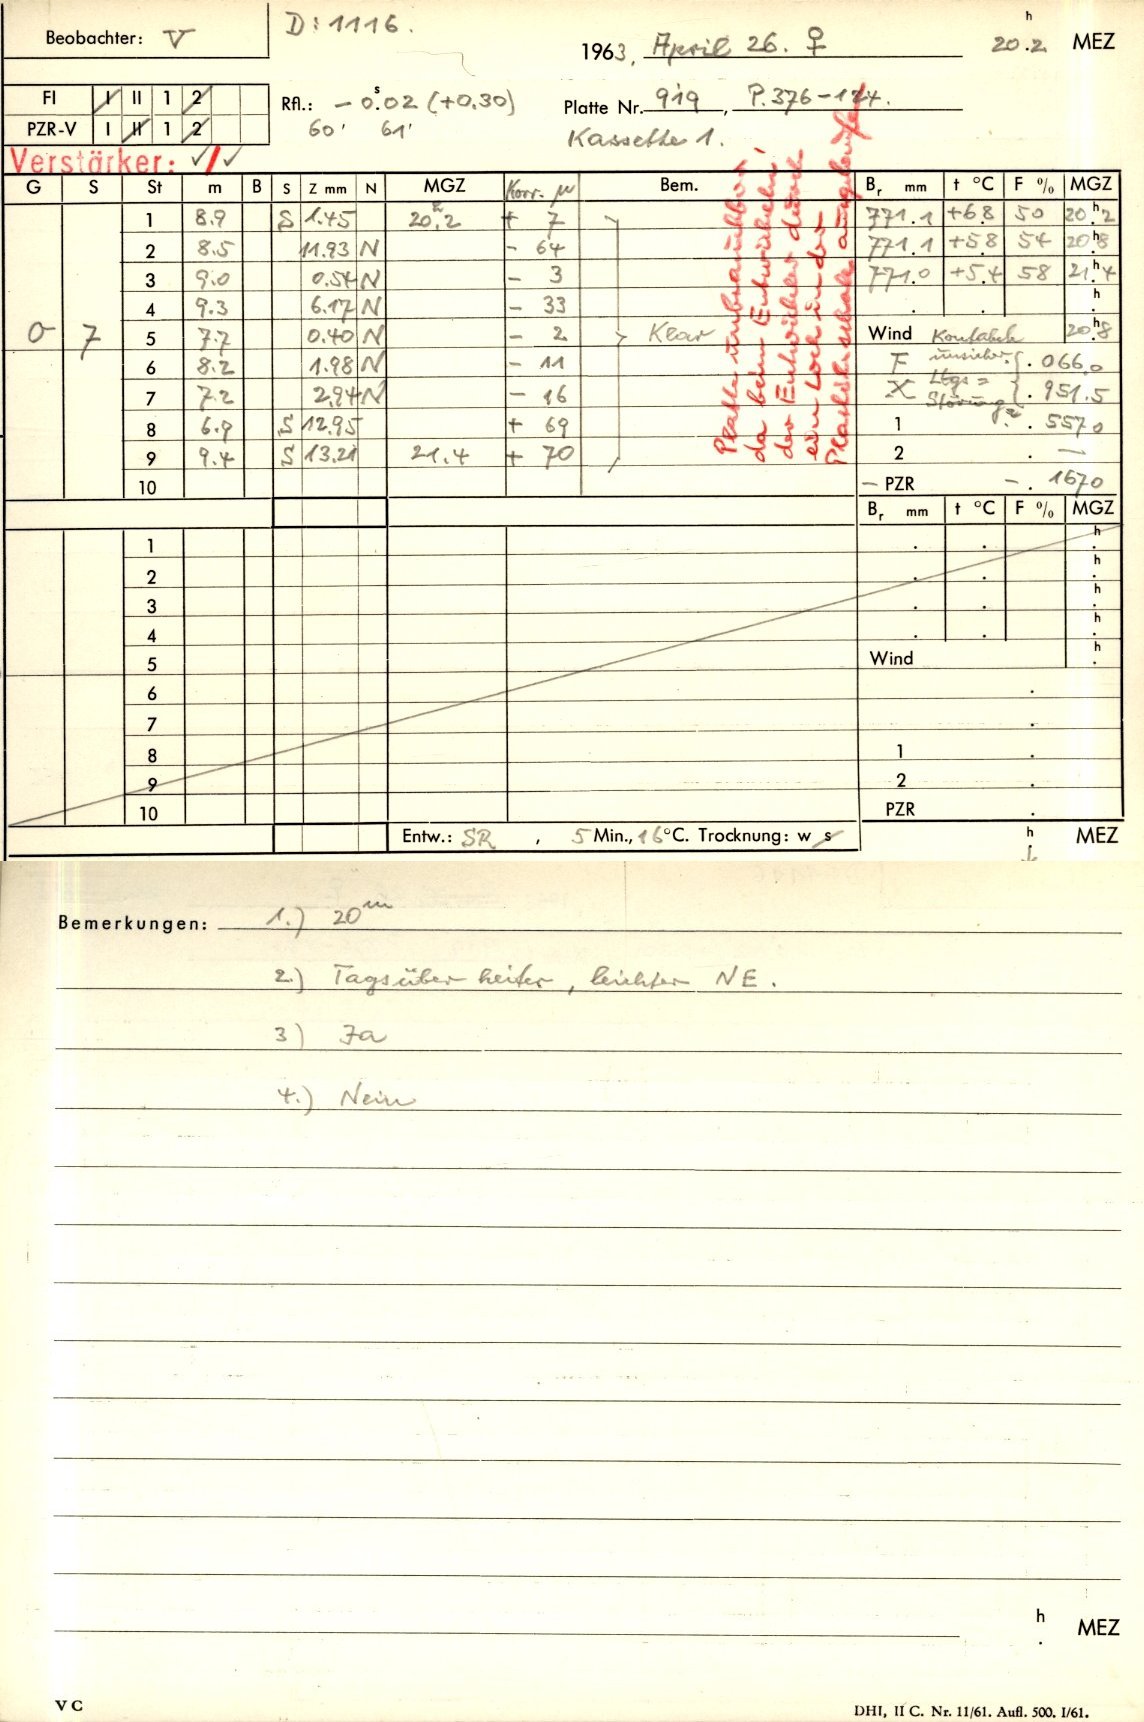 Beobachter: V
D: 1116.
1963, April 26. ♀ 20h.2 MEZ
FI I II 1 2
PZR-V I II 1 2
Rfl.: - 0s.02 (+0.30)
60' 61'
Platte Nr. 919, P.376-124.
Kassette 1.
Verstärker: ✓/✓
G S St m B S Z mm N MGZ Korr. μ Bem. Br mm t °C F % MGZ
1 8.9 S 1.45 20h.2 + 7 771.1 +6.8 50 20h.2
2 8.5 11.93 N - 64 771.1 +5.8 54 20h.8
3 9.0 0.54 N - 3 771.0 +5.4 58 21h.4
4 9.3 6.17 N - 33 . . h.
0 7 5 7.7 0.40 N - 2 Klar Wind 20h.8
6 8.2 1.98 N - 11 F unsicher . 066.0
7 7.2 2.94 N - 16 X Störung . 951.5
8 6.9 S 12.95 + 69 1 . 5570
9 9.4 S 13.21 21.4 + 70 2 . —
10 - PZR - . 1670
Platte unbrauchbar,
da beim Entwickeln
der Entwickler durch
ein Loch in der
Plastikschale ausgelaufen
Br mm t °C F % MGZ
1 . . h.
2 . . h.
3 . . h.
4 . . h.
5 Wind h.
6 .
7 .
8 1 .
9 2 .
10 PZR .
Entw.: SR , 5 Min., 16°C. Trocknung: w s h MEZ
Bemerkungen: 1.) 20m
2.) Tagsüber heiter, leichter NE.
3) Ja
4.) Nein
h. MEZ
V C
DHI, II C. Nr. 11/61. Aufl. 500. I/61.